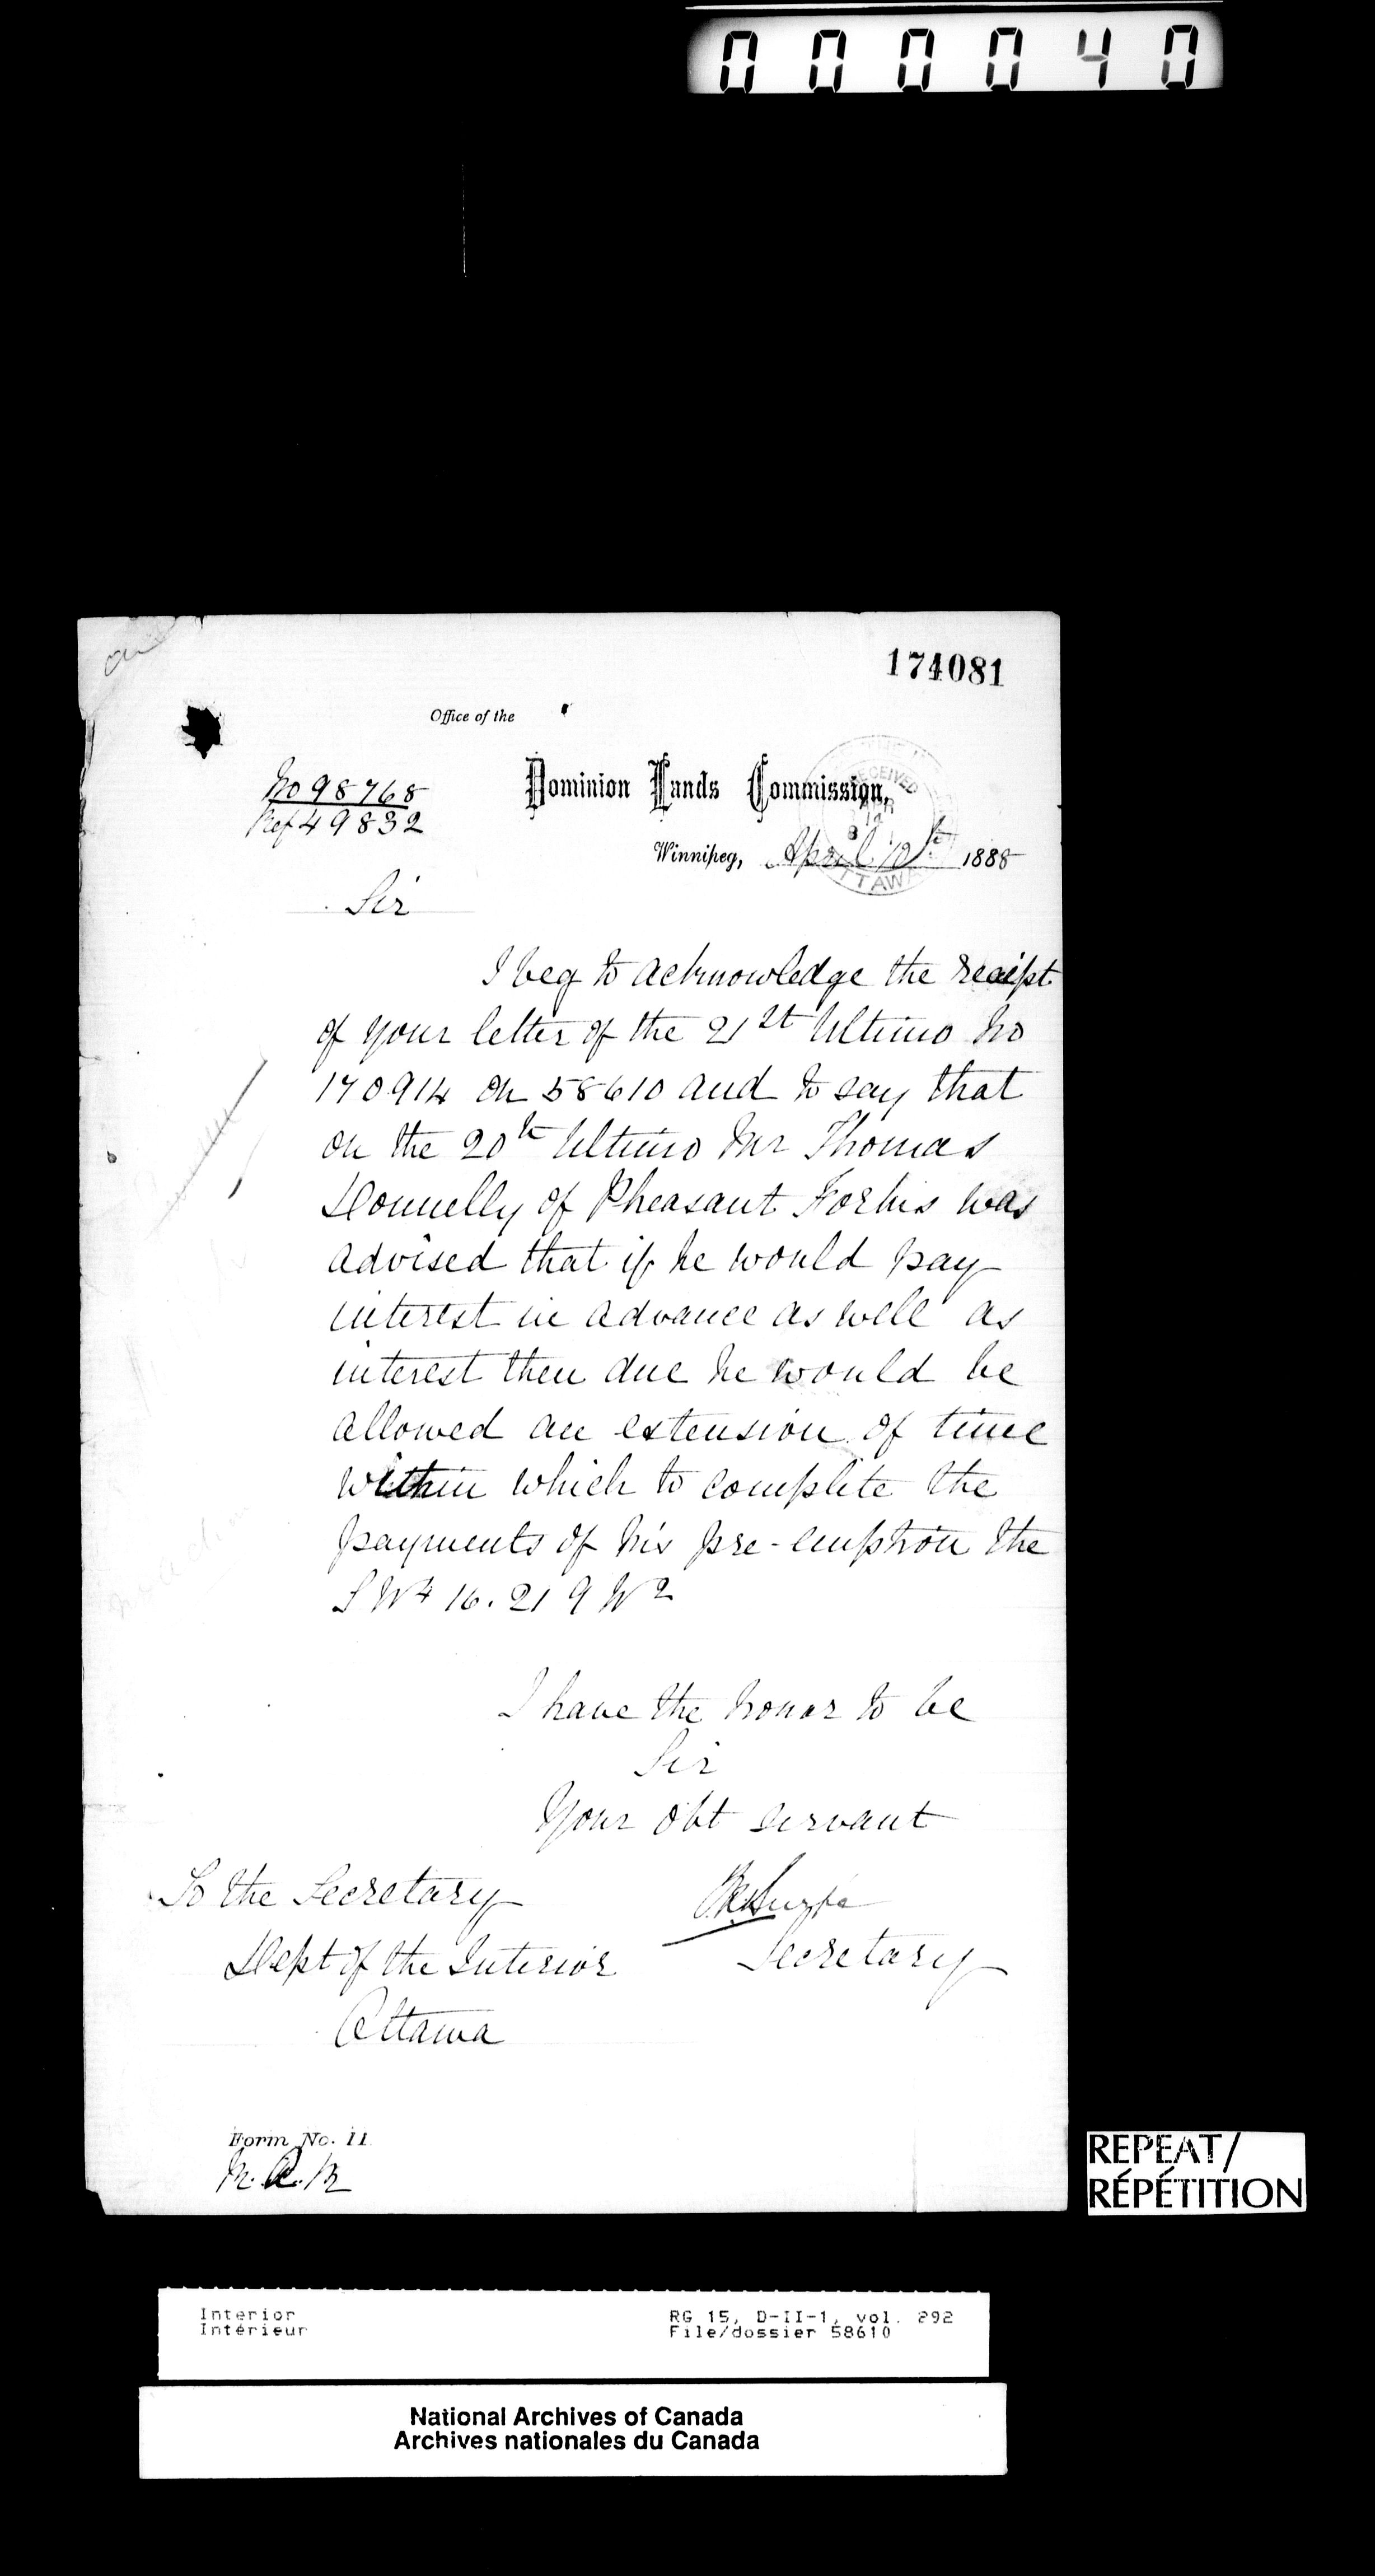 000040
174081
Office of the
No 98768
Ref 49832
Dominion Lands Commission,
RECEIVED
APR
OTTAWA
Winnipeg, April 10th 1888
Sir
I beg to acknowledge the receipt
of your letter of the 21st Ultimo No
170914 on 58610 and to say that
on the 20th Ultimo Mr Thomas
Donnelly of Pheasant Forks was
advised that if he would pay
interest in advance as well as
interest then due he would be
allowed an extension of time
within which to complete the
payments of his pre-emption the
S W4 16. 21 9 W2
I have the honor to be
Sir
Your obt servant
To the Secretary
Secretary
Dept of the Interior
Ottawa
Form No. 11
REPEAT/
RÉPÉTITION
Interior
Intérieur
RG 15, D-II-1, vol. 292
File/dossier 58610
National Archives of Canada
Archives nationales du Canada